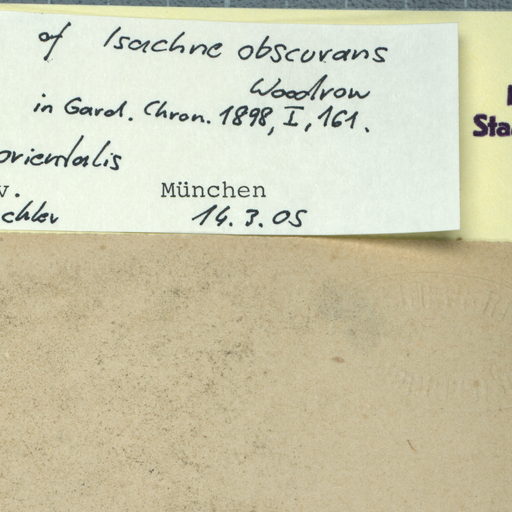 of Isachne obscurans
Woodrow
in Gard. Chron. 1898, I, 161.
orientalis
v. München
chler 14.3.05
Sta